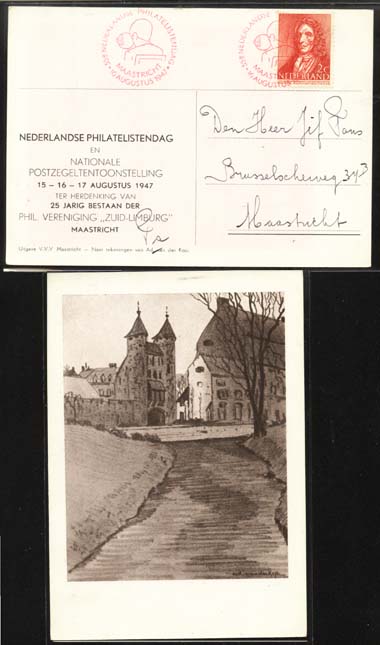 NEDERLANDSE PHILATELISTENDAG
MAASTRICHT
AUGUSTUS 1947
NEDERLANDSE
MAASTRICHT
AUGUSTUS
2c
NEDERLAND
NEDERLANDSE PHILATELISTENDAG
EN
NATIONALE
POSTZEGELTENTOONSTELLING
15 - 16 - 17 AUGUSTUS 1947
TER HERDENKING VAN
25 JARIG BESTAAN DER
PHIL. VERENIGING „ZUID-LIMBURG"
MAASTRICHT
Uitgave V.V.V. Maastricht - Naar tekeningen van
Den Heer Jif
Brusselscheweg
Maastricht